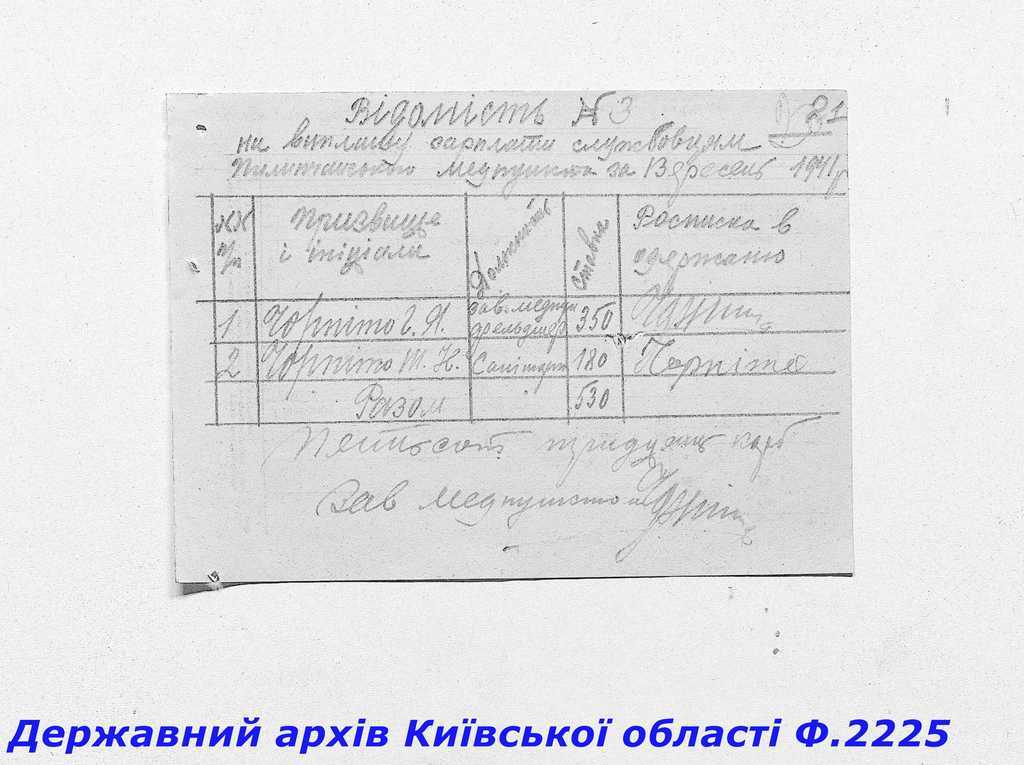 21
Відомість № 3
на виплату зарплати службовцям
медпункта за Вересень 1941 р
№№ п/п
Призвище і ініціали
Должность
Ставка
Росписка в одержанню
1 Чорпіта Г. Я. зав. медпун фельдшер 350
2 Чорпіта М. Н. Санітарк 180 Чорпіта
Разом 530
Пятьсот тридцять карб
Зав медпунктом
Державний архів Київської області Ф.2225